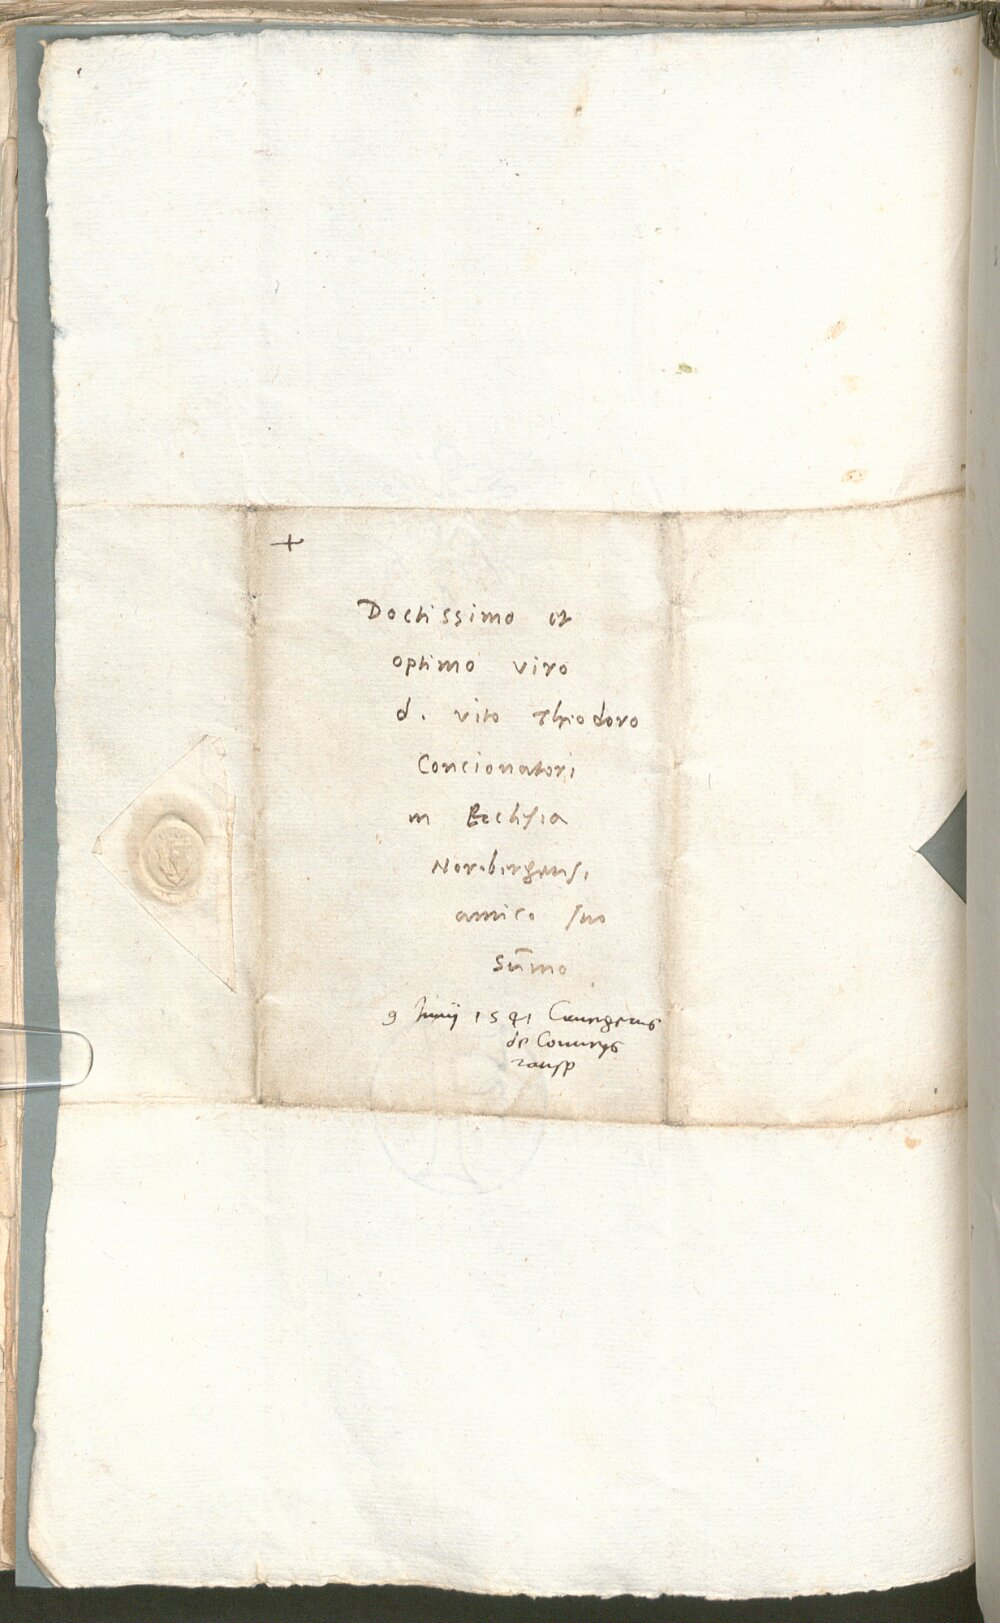 +
Doctissimo et
optimo viro
d. vito Theodoro
Concionatori
in Ecclesia
Noribergensi
amico suo
sum̄mo
9 Junij 1541
de